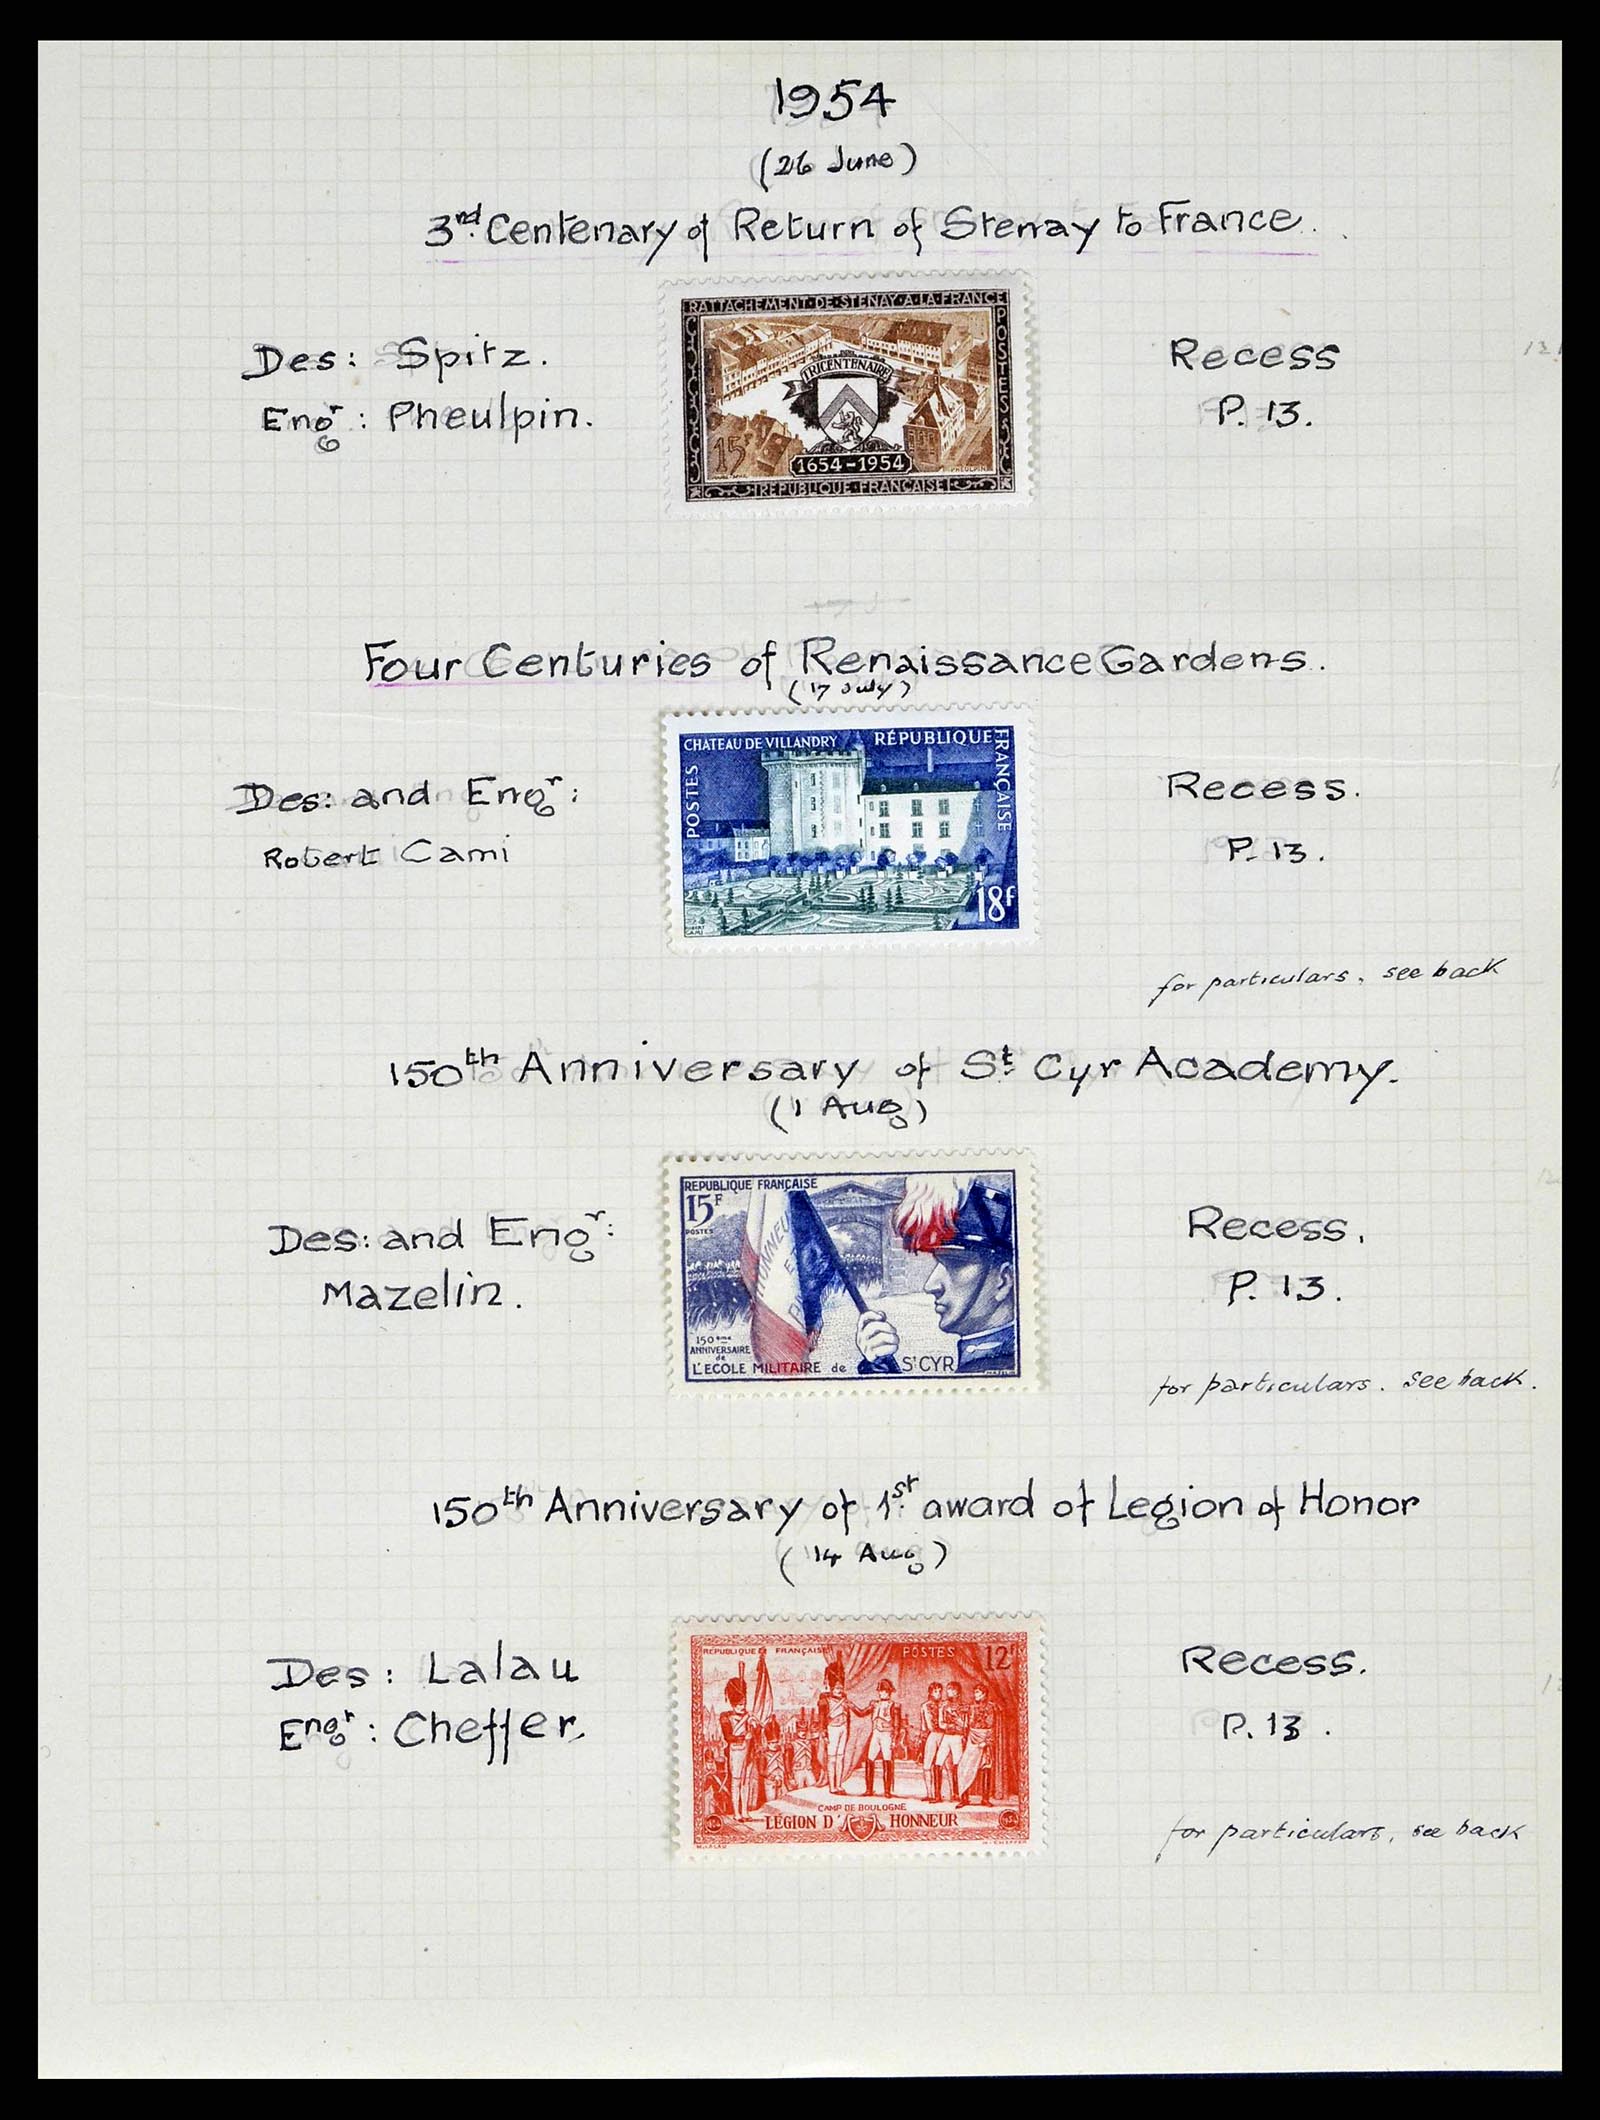 1954
(26 June)
3rd. Centenary of Return of Stenay to France.
RATTACHEMENT·DE·STENAY·A·LA·FRANCE
POSTES
TRICENTENAIRE
15F
1654-1954
PHEULPIN
RÉPUBLIQUE·FRANÇAISE
Des: Spitz.
Engr: Pheulpin.
Recess
P. 13.
Four Centuries of Renaissance Gardens.
(17 July)
CHATEAU DE VILLANDRY RÉPUBLIQUE FRANÇAISE
POSTES
18F
CAMI
Des: and Engr:
Robert Cami
Recess.
P. 13.
for particulars, see back
150th Anniversary of St. Cyr Academy.
(1 Aug)
REPUBLIQUE FRANÇAISE
15F
POSTES
150ème
ANNIVERSAIRE
de
L'ECOLE MILITAIRE de St CYR
Des: and Engr:
Mazelin.
Recess.
P. 13.
for particulars. see back.
150th Anniversary of 1st. award of Legion of Honor
(14 Aug)
RÉPUBLIQUE FRANÇAISE POSTES 12F
CAMP DE BOULOGNE
LÉGION D'HONNEUR
Des: Lalau
Engr: Cheffer.
Recess.
P. 13.
for particulars, see back